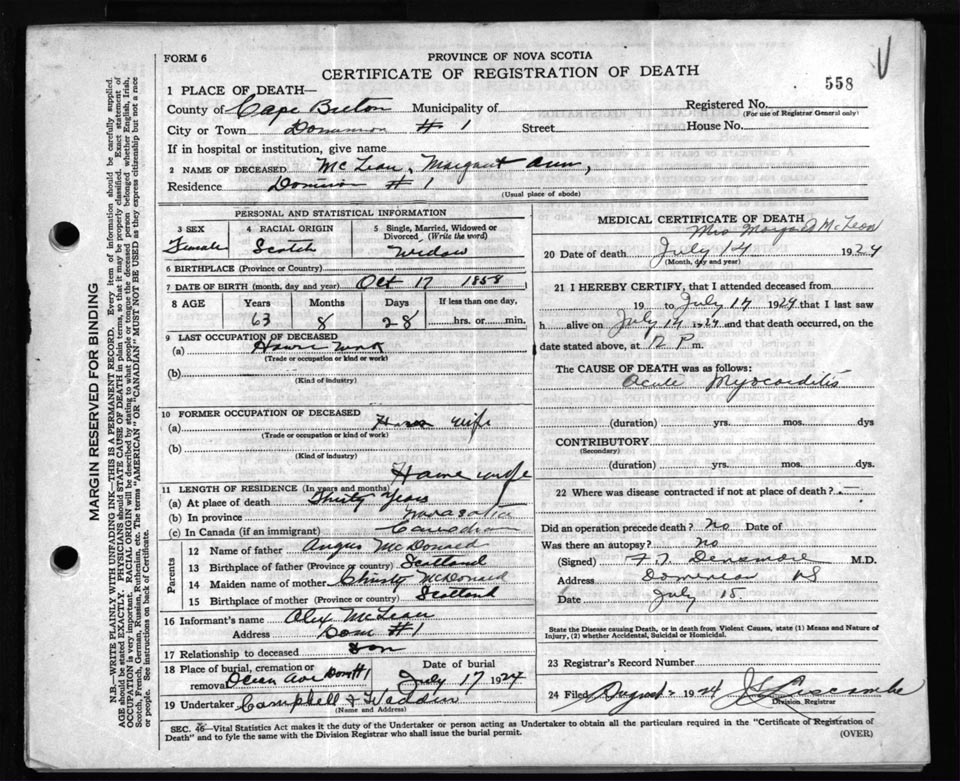 FORM 6
PROVINCE OF NOVA SCOTIA
CERTIFICATE OF REGISTRATION OF DEATH
558
1 PLACE OF DEATH—
County of Cape Breton Municipality of
Registered No.
(For use of Registrar General only)
City or Town Dominion # 1 Street
House No.
If in hospital or institution, give name
2 NAME OF DECEASED McLean, Margaret Ann,
Residence Dominion # 1
(Usual place of abode)
PERSONAL AND STATISTICAL INFORMATION
3 SEX
Female
4 RACIAL ORIGIN
Scotch
5 Single, Married, Widowed or Divorced (Write the word)
Widow
6 BIRTHPLACE (Province or Country)
7 DATE OF BIRTH (month, day and year) Oct 17 1858
8 AGE Years Months Days If less than one day,
63 8 28 hrs. or min.
9 LAST OCCUPATION OF DECEASED
(a) House work
(Trade or occupation or kind of work)
(b)
(Kind of industry)
10 FORMER OCCUPATION OF DECEASED
(a) House wife
(Trade or occupation or kind of work)
(b)
(Kind of industry)
House wife
11 LENGTH OF RESIDENCE (In years and months)
(a) At place of death Thirty Years
(b) In province Nova Scotia
(c) In Canada (if an immigrant) Canadian
Parents
12 Name of father Angus McDonald
13 Birthplace of father (Province or country) Scotland
14 Maiden name of mother Christy McDonald
15 Birthplace of mother (Province or country) Scotland
16 Informant's name Alex McLean
Address Dom #1
17 Relationship to deceased Son
18 Place of burial, cremation or removal Ocean Ave Dom #1
Date of burial
July 17 1924
19 Undertaker Campbell & Waddin
(Name and Address)
MEDICAL CERTIFICATE OF DEATH
Mrs Margaret A McLeod
20 Date of death July 14 1924
(Month, day and year)
21 I HEREBY CERTIFY, that I attended deceased from
19 to July 14 1924 that I last saw
h alive on July 14 1924 and that death occurred, on
date stated above, at 12 P m.
The CAUSE OF DEATH was as follows:
Acute Myocarditis
(duration) yrs. mos. dys
CONTRIBUTORY
(Secondary)
(duration) yrs. mos. dys.
22 Where was disease contracted if not at place of death? —
Did an operation precede death? No Date of
Was there an autopsy? No
(Signed) Densmore M.D.
Address Dominion NS
Date July 15
State the Disease causing Death, or in death from Violent Causes, state (1) Means and Nature of
Injury, (2) whether Accidental, Suicidal or Homicidal.
23 Registrar's Record Number
24 Filed August 1924
Division Registrar
SEC. —Vital Statistics Act makes it the duty of the Undertaker or person acting as Undertaker to obtain all the particulars required in the "Certificate of Registration of
Death" and to fyle the same with the Division Registrar who shall issue the burial permit.
(OVER)
MARGIN RESERVED FOR BINDING
N.B.—WRITE PLAINLY WITH UNFADING INK—THIS IS A PERMANENT RECORD. Every item of information should be carefully supplied.
AGE should be stated EXACTLY. PHYSICIANS should STATE CAUSE OF DEATH in plain terms, so that it may be properly classified. Exact statement of
OCCUPATION is very important. RACIAL ORIGIN will be described by stating to what people or tongue the deceased person belonged whether English, Irish,
Scotch, French, German, Russian, Ruthenian, etc. The terms "AMERICAN" OR "CANADIAN" MUST NOT BE USED as they express citizenship but not a race
or people. See instructions on back of Certificate.